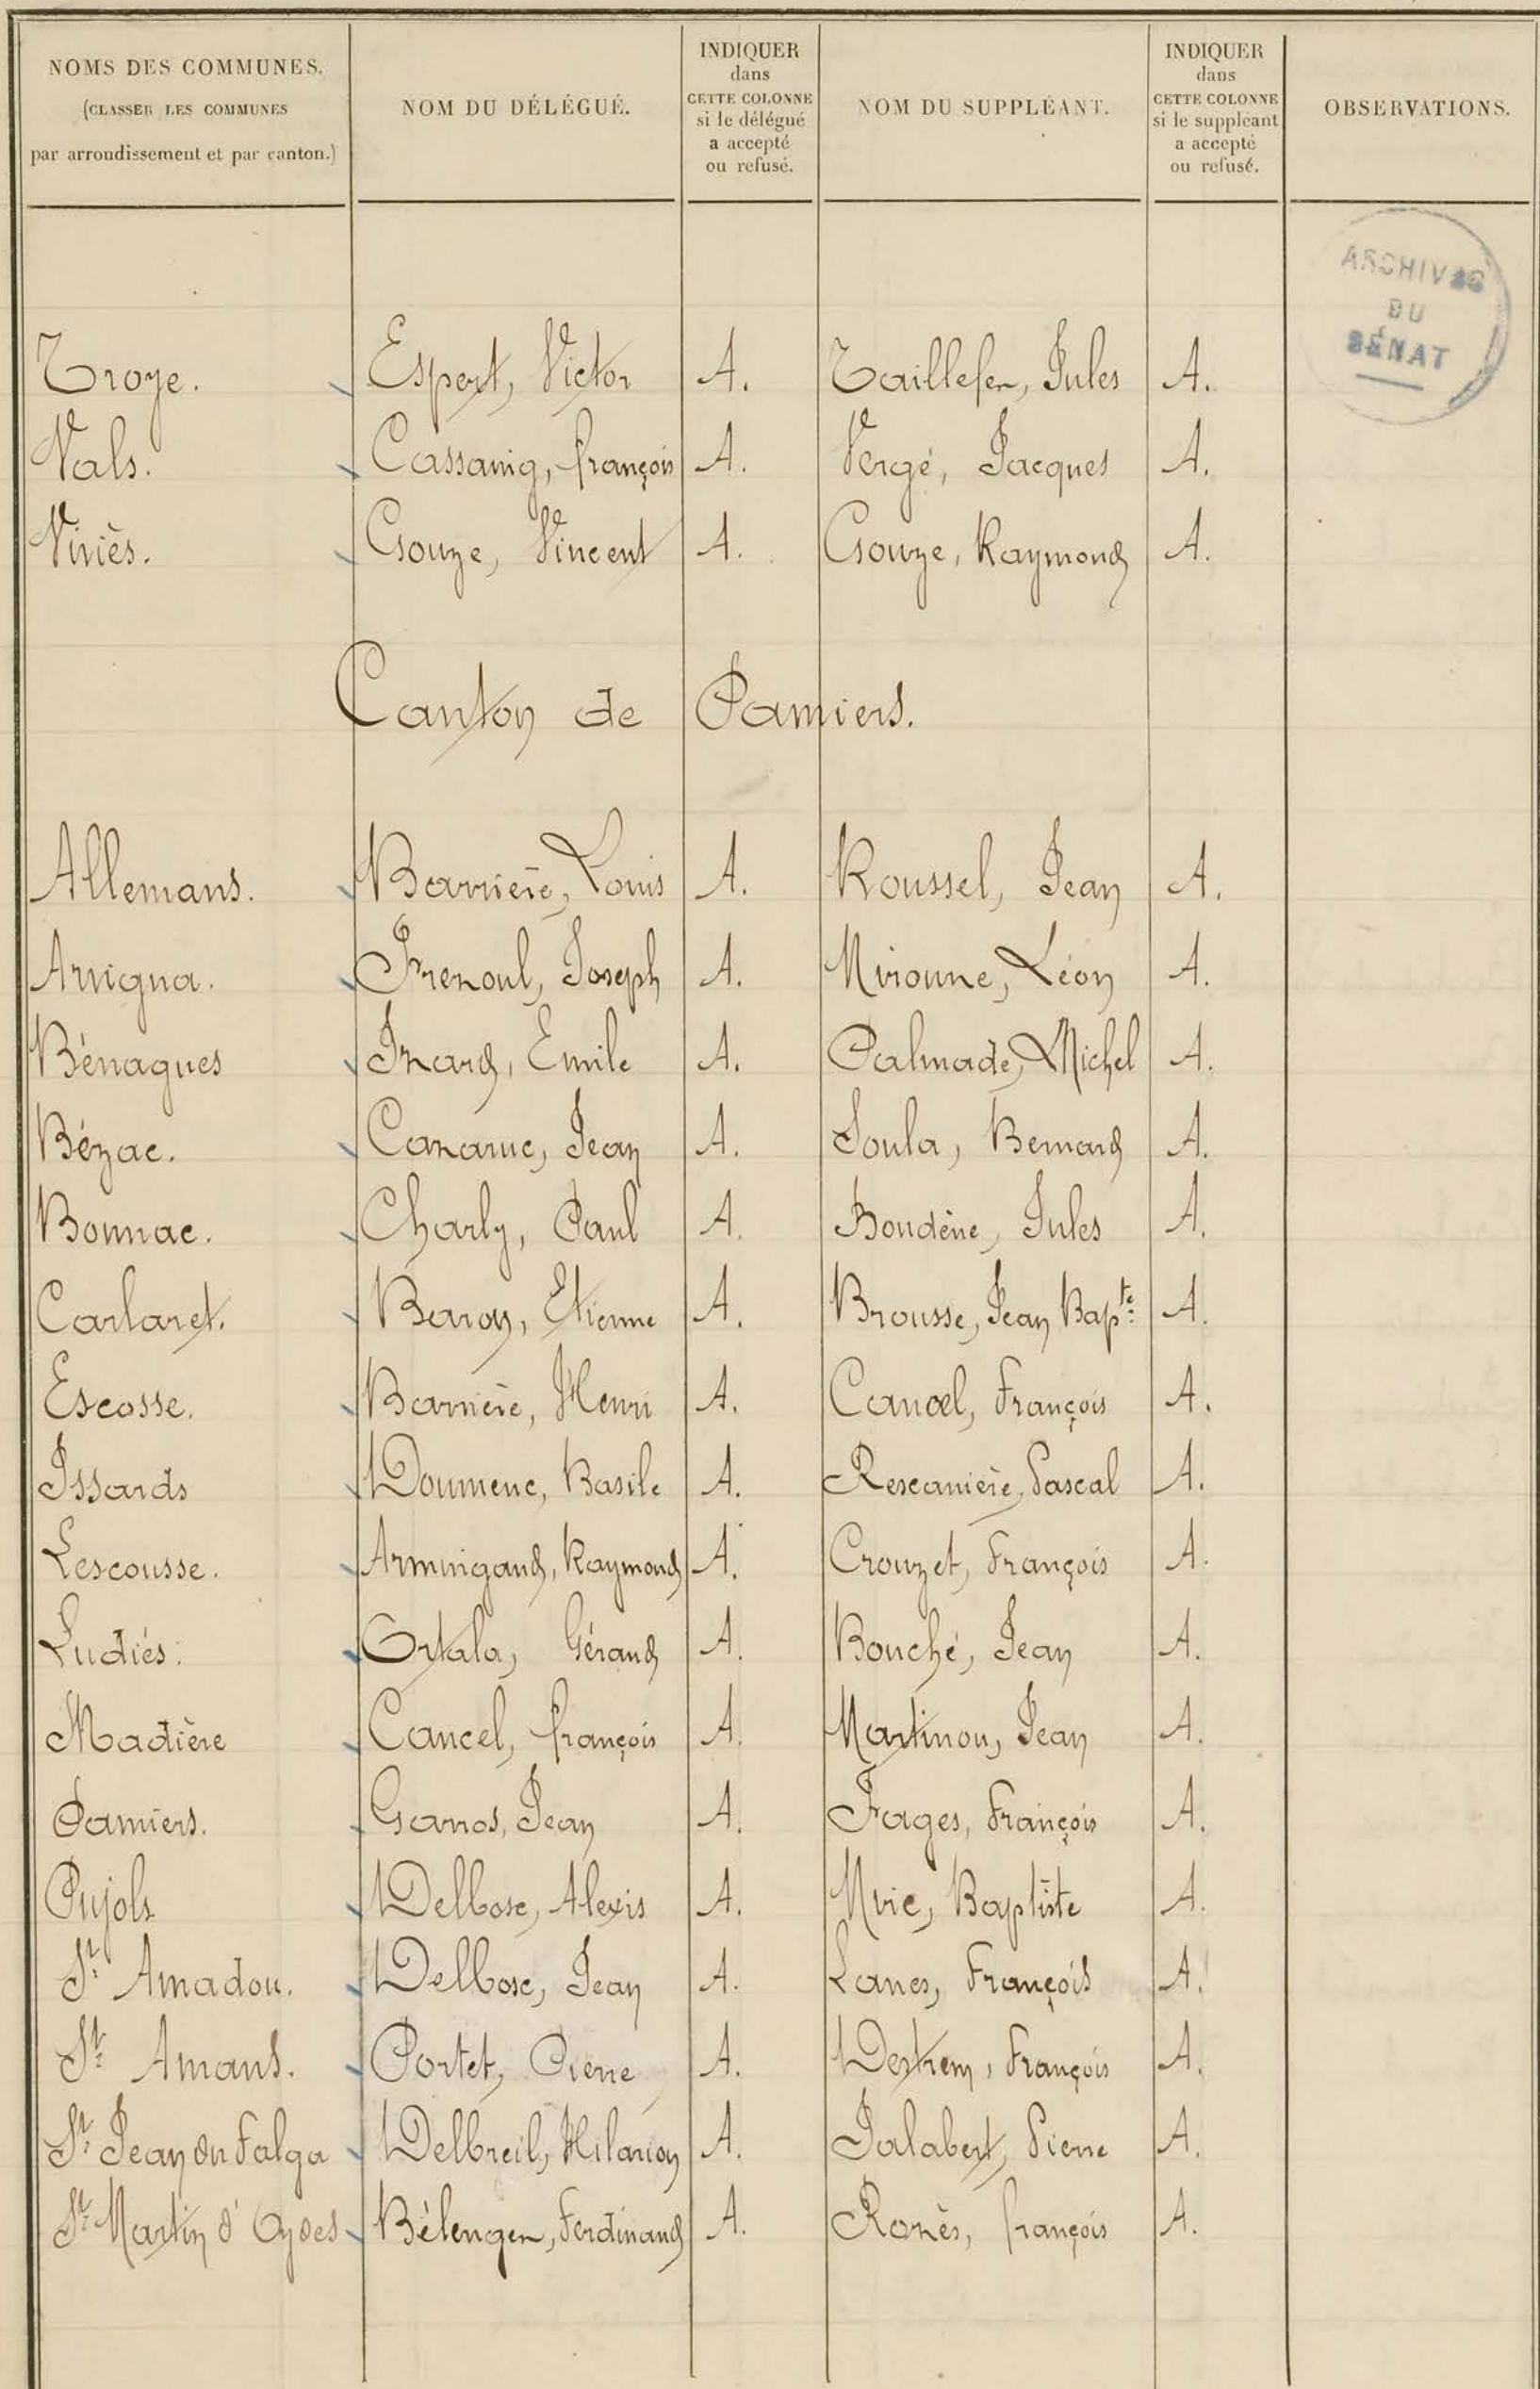 NOMS DES COMMUNES.
(CLASSER LES COMMUNES
par arrondissement et par canton.)
NOM DU DÉLÉGUÉ.
INDIQUER
dans
CETTE COLONNE
si le délégué
a accepté
ou refusé.
NOM DU SUPPLÉANT.
INDIQUER
dans
CETTE COLONNE
si le suppléant
a accepté
ou refusé.
OBSERVATIONS.
ARCHIVES
DU
SÉNAT
Troye. Espert, Victor A. Taillefer, Jules A.
Vals. Cassaing, françois A. Vergé, Jacques A.
Viviès. Gouze, Vincent A. Gouze, Raymond A.
Canton de Pamiers.
Allemans. Barrière, Louis A. Roussel, Jean A.
Arvigna. Frezoul, Joseph A. Mirouse, Léon A.
Bénagues Izard, Emile A. Palmade, Michel A.
Bézac. Cazaruc, Jean A. Soula, Bernard A.
Bonnac. Charly, Paul A. Boudène, Jules A.
Carlaret. Baron, Etienne A. Brousse, Jean Bapte A.
Escosse. Barrière, Henri A. Cancel, François A.
Issards Doumenc, Basile A. Rescanière, Pascal A.
Lescousse. Armingaud, Raymond A. Crouzet, François A.
Ludiés. Ortala, Géraud A. Bouché, Jean A.
Madière Cancel, françois A. Martinou, Jean A.
Pamiers. Garros, Jean A. Fages, François A.
Pujols Delbosc, Alexis A. Baptiste A.
St Amadou. Delbosc, Jean A. Lanes, François A.
St Amans. Portet, Pierre A. Destrem, François A.
St Jean du Falga Delbreil, Hilarion A. Jalabert, Pierre A.
St Martin d'Oydes Bélenger, Ferdinand A. Rozès, françois A.